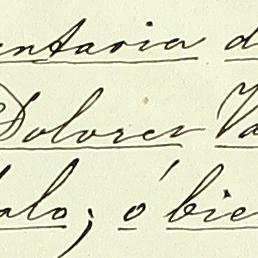 entaria d
Dolores Va
alo; ó bie